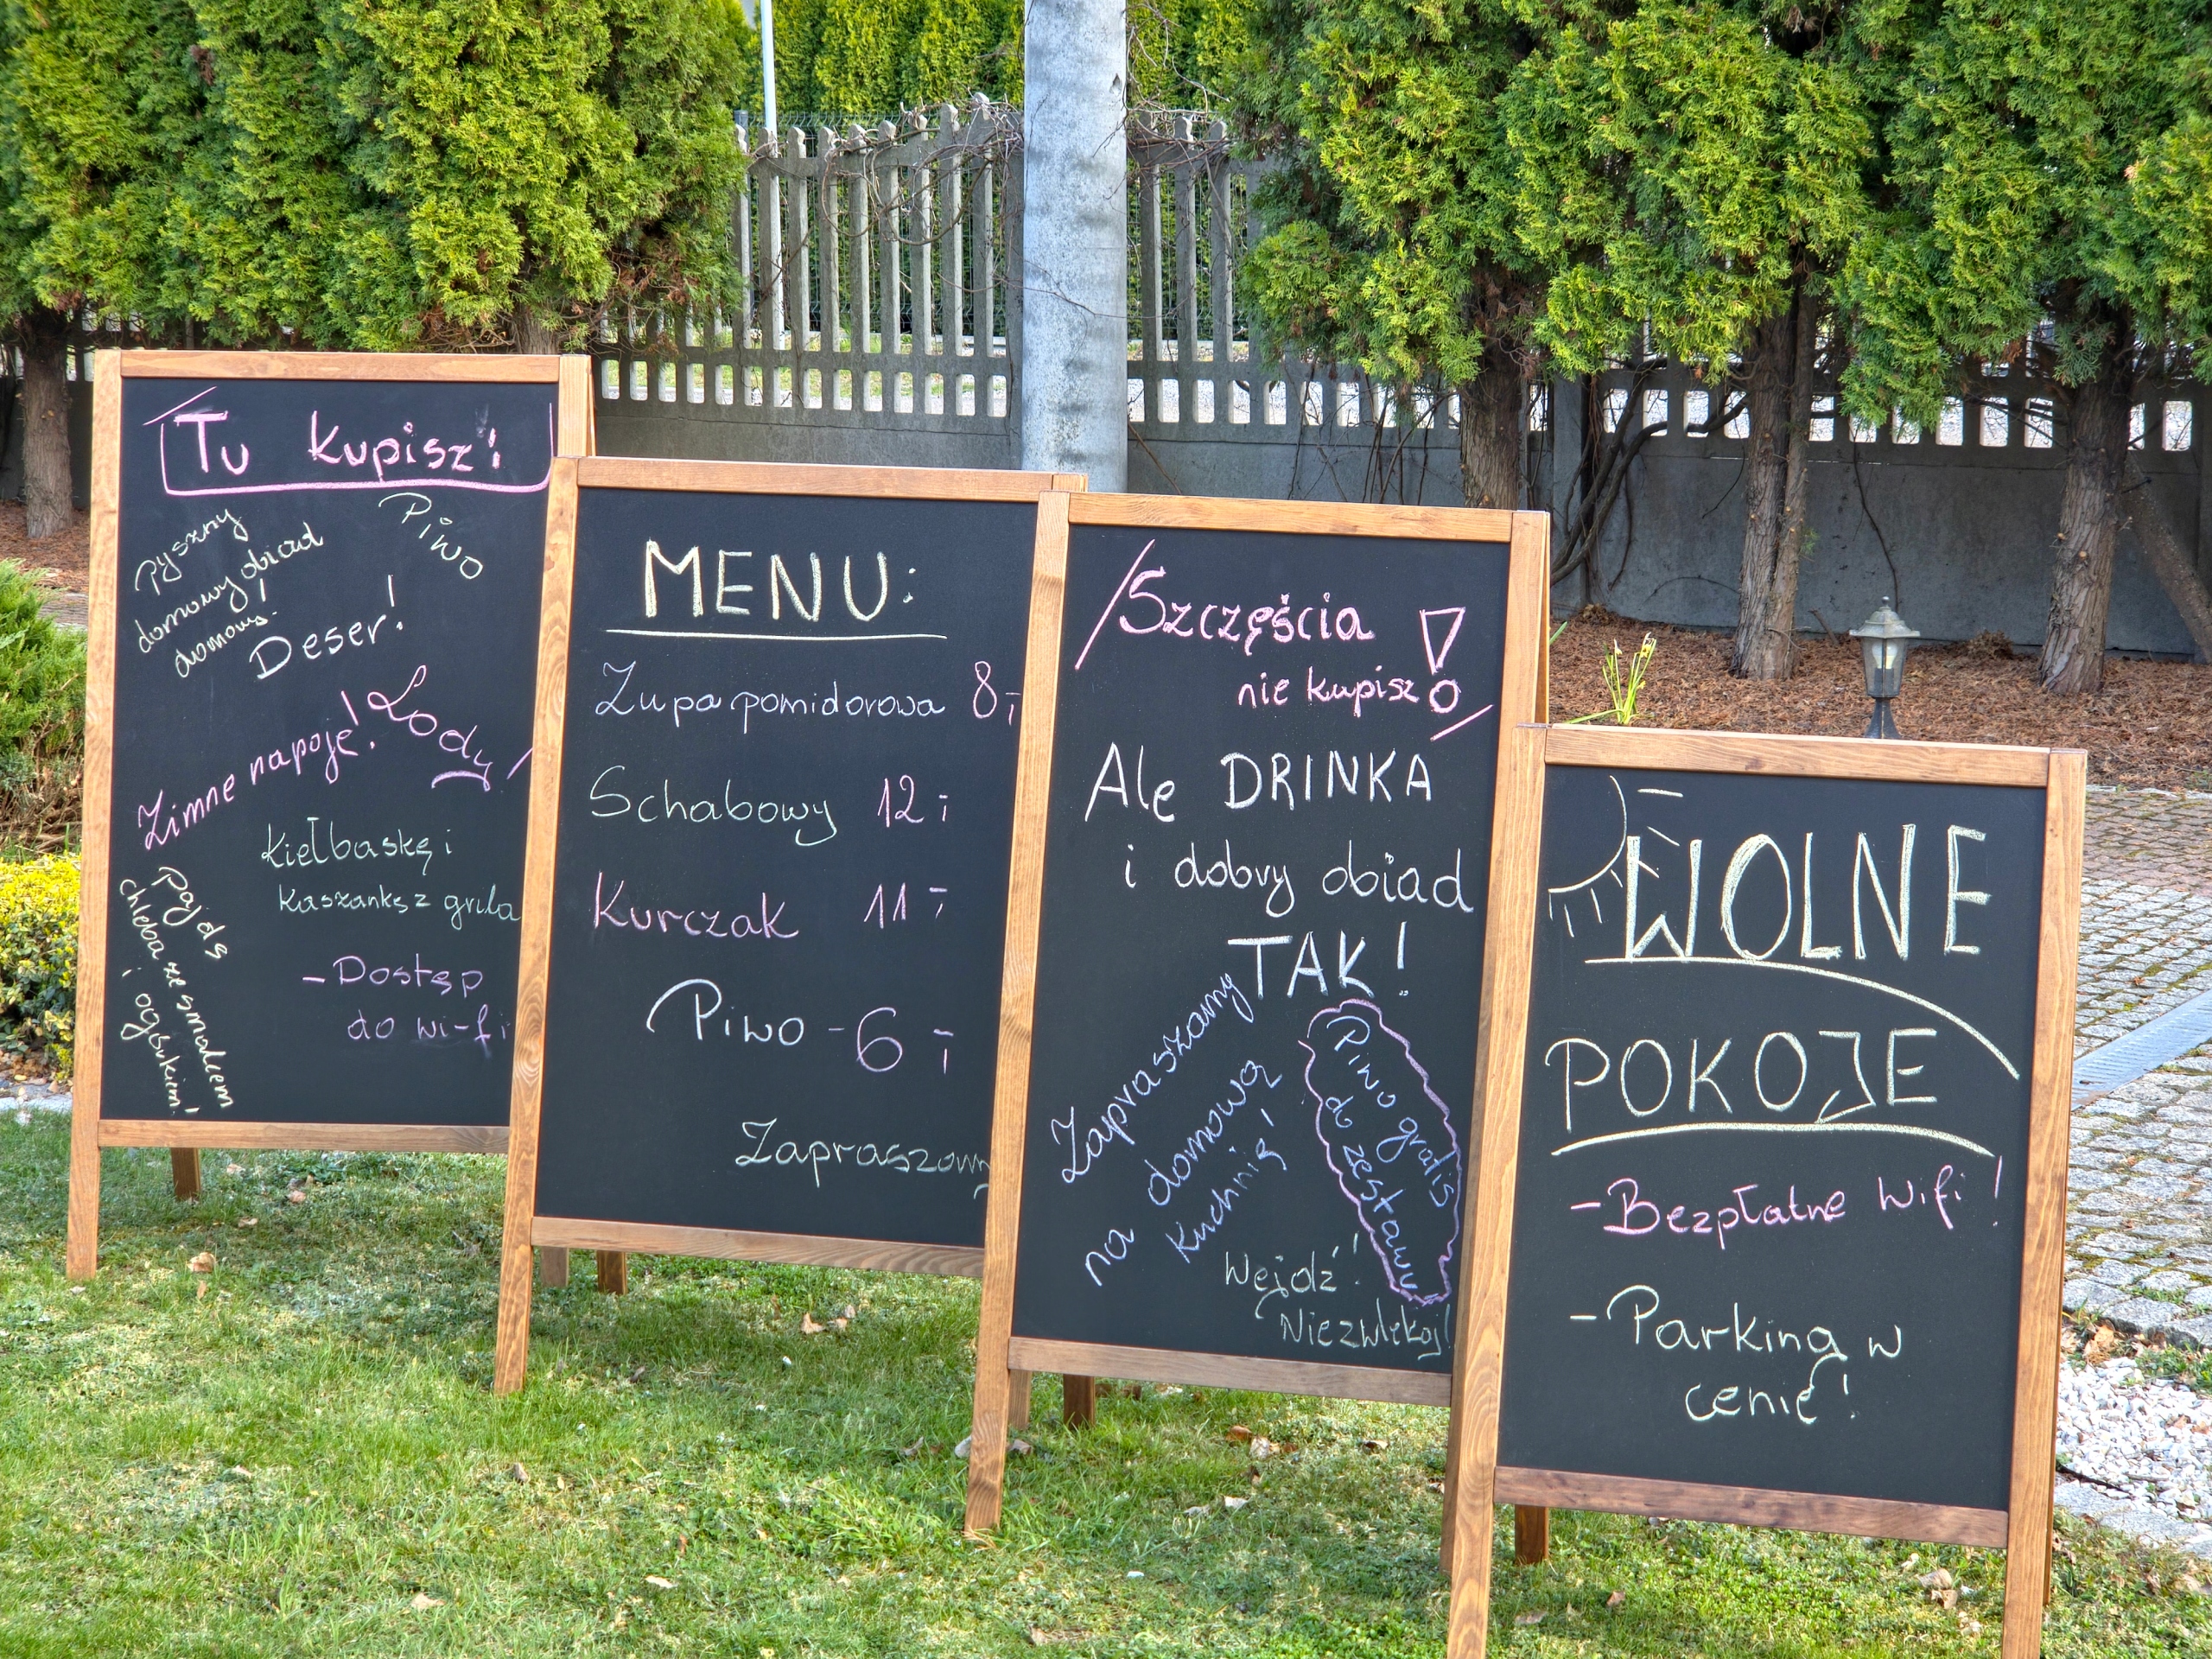 Tu kupisz:
Pyszny
domowy obiad
domowy!
Piwo
Deser!
Zimne napoje!
Lody!
Kiełbaskę i
Kaszankę z grila
- Dostęp
do wi-fi
Pajdę
chleba ze smalcem
i ogórkiem!
MENU:
Zupa pomidorowa 8,-
Schabowy 12,-
Kurczak 11,-
Piwo - 6,-
Zapraszamy
Szczęścia
nie kupisz!
Ale DRINKA
i dobry obiad
TAK!
Zapraszamy
na domową
kuchnię!
Piwo gratis
do zestawu
Wejdź!
Nie zwlekaj!
WOLNE
POKOJE
- Bezpłatne Wifi!
- Parking w
cenie!